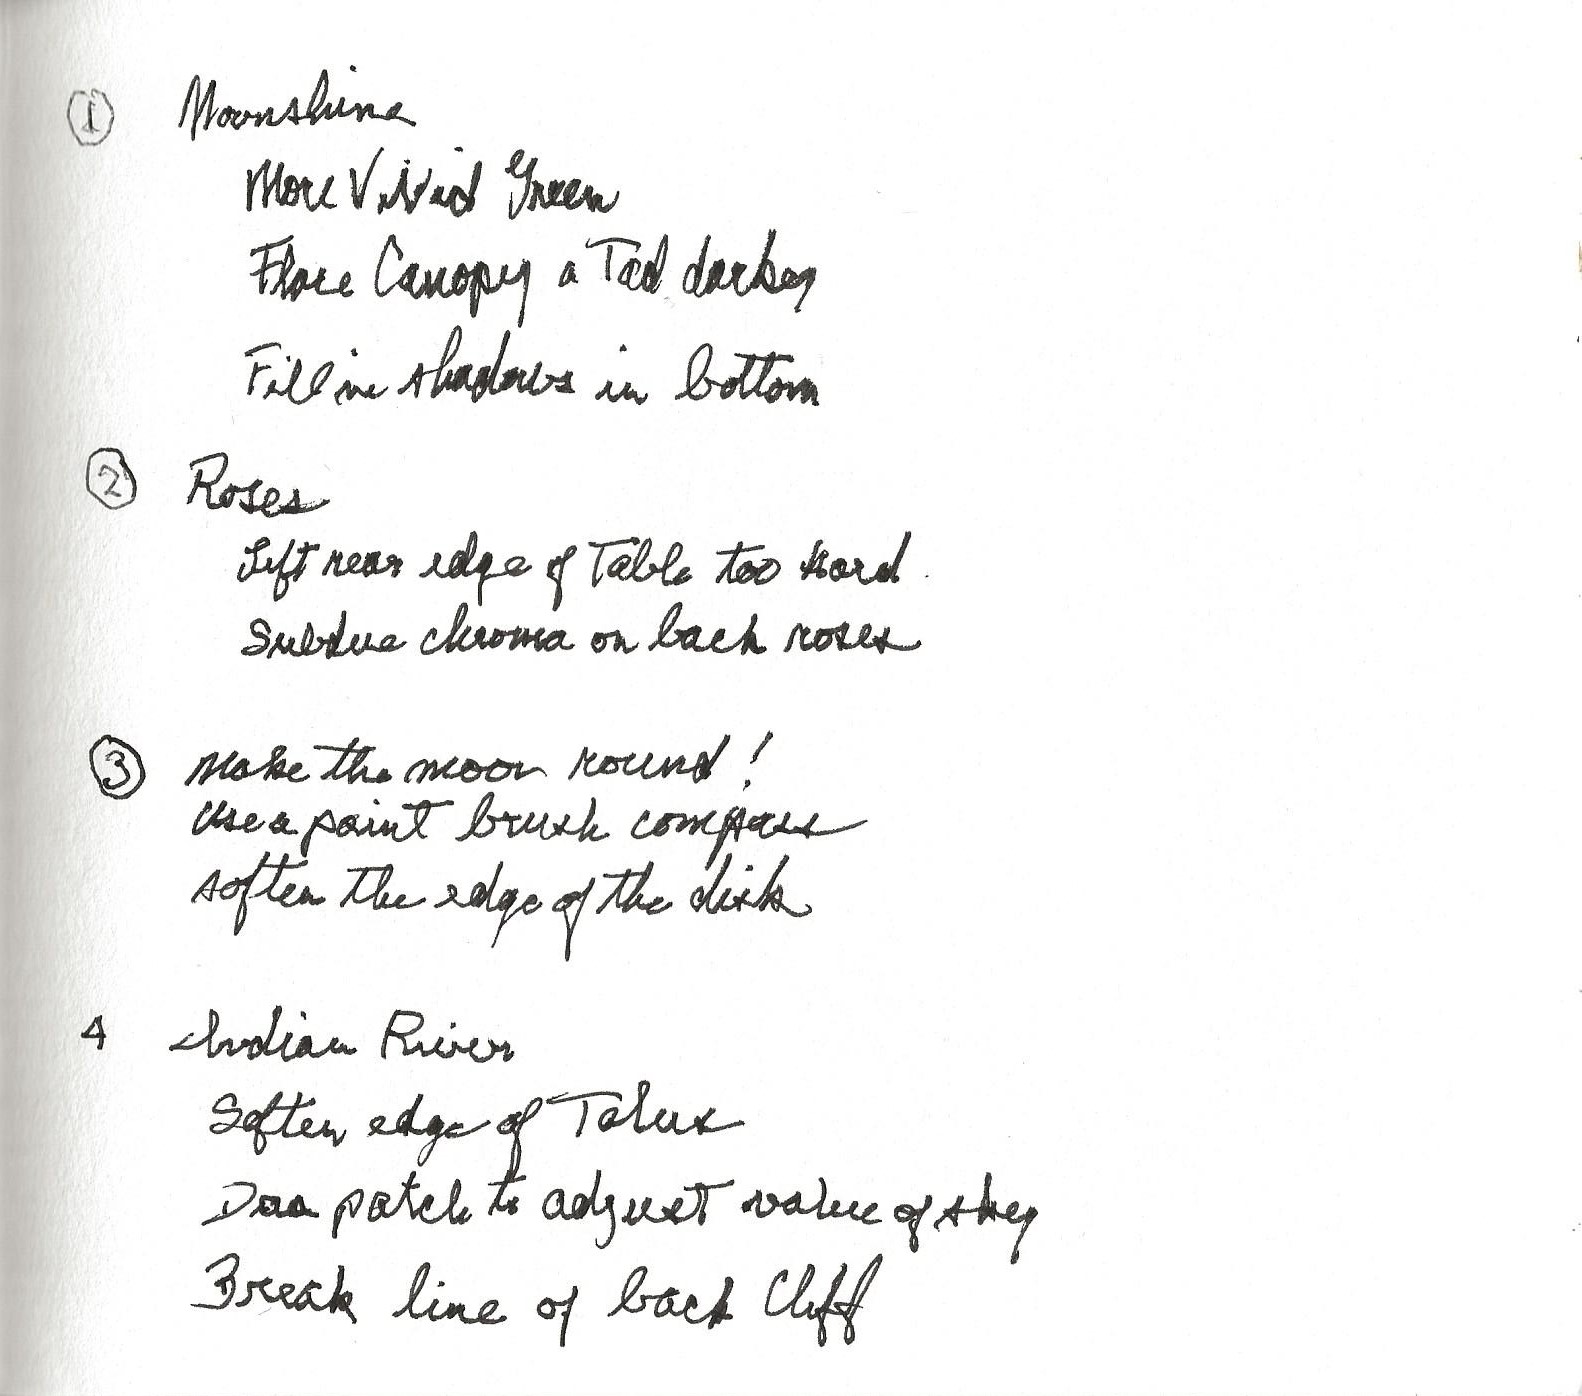 1 Moonshine
More Vivid Green
Flare Canopy a Tad darker
Fill in shadows in bottom
2 Roses
Left rear edge of Table too Hard
Subdue chroma on back roses
3 Make the moon round!
Use a paint brush compass
soften the edge of the disk
4 Indian River
Soften edge of Talus
Do a patch to adjust value of sky
Break line of back Cliff